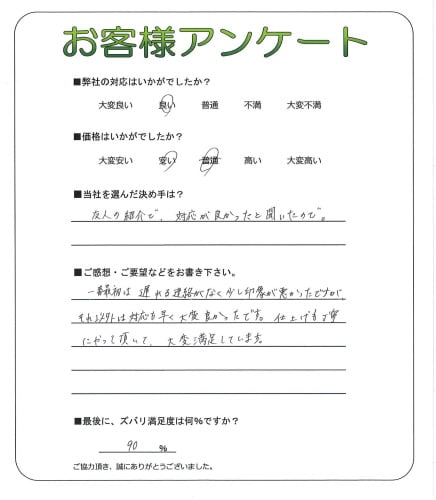 お客様アンケート
■弊社の対応はいかがでしたか？
大変良い 良い 普通 不満 大変不満
■価格はいかがでしたか？
大変安い 安い 普通 高い 大変高い
■当社を選んだ決め手は？
友人の紹介で、対応が良かったと聞いたので。
■ご感想・ご要望などをお書き下さい。
一番最初は遅れる連絡がなく少し印象が悪かったですが、
それ以外は対応も早く大変良かったです。仕上げも丁寧
にやって頂いて、大変満足しています。
■最後に、ズバリ満足度は何％ですか？
90 ％
ご協力頂き、誠にありがとうございました。